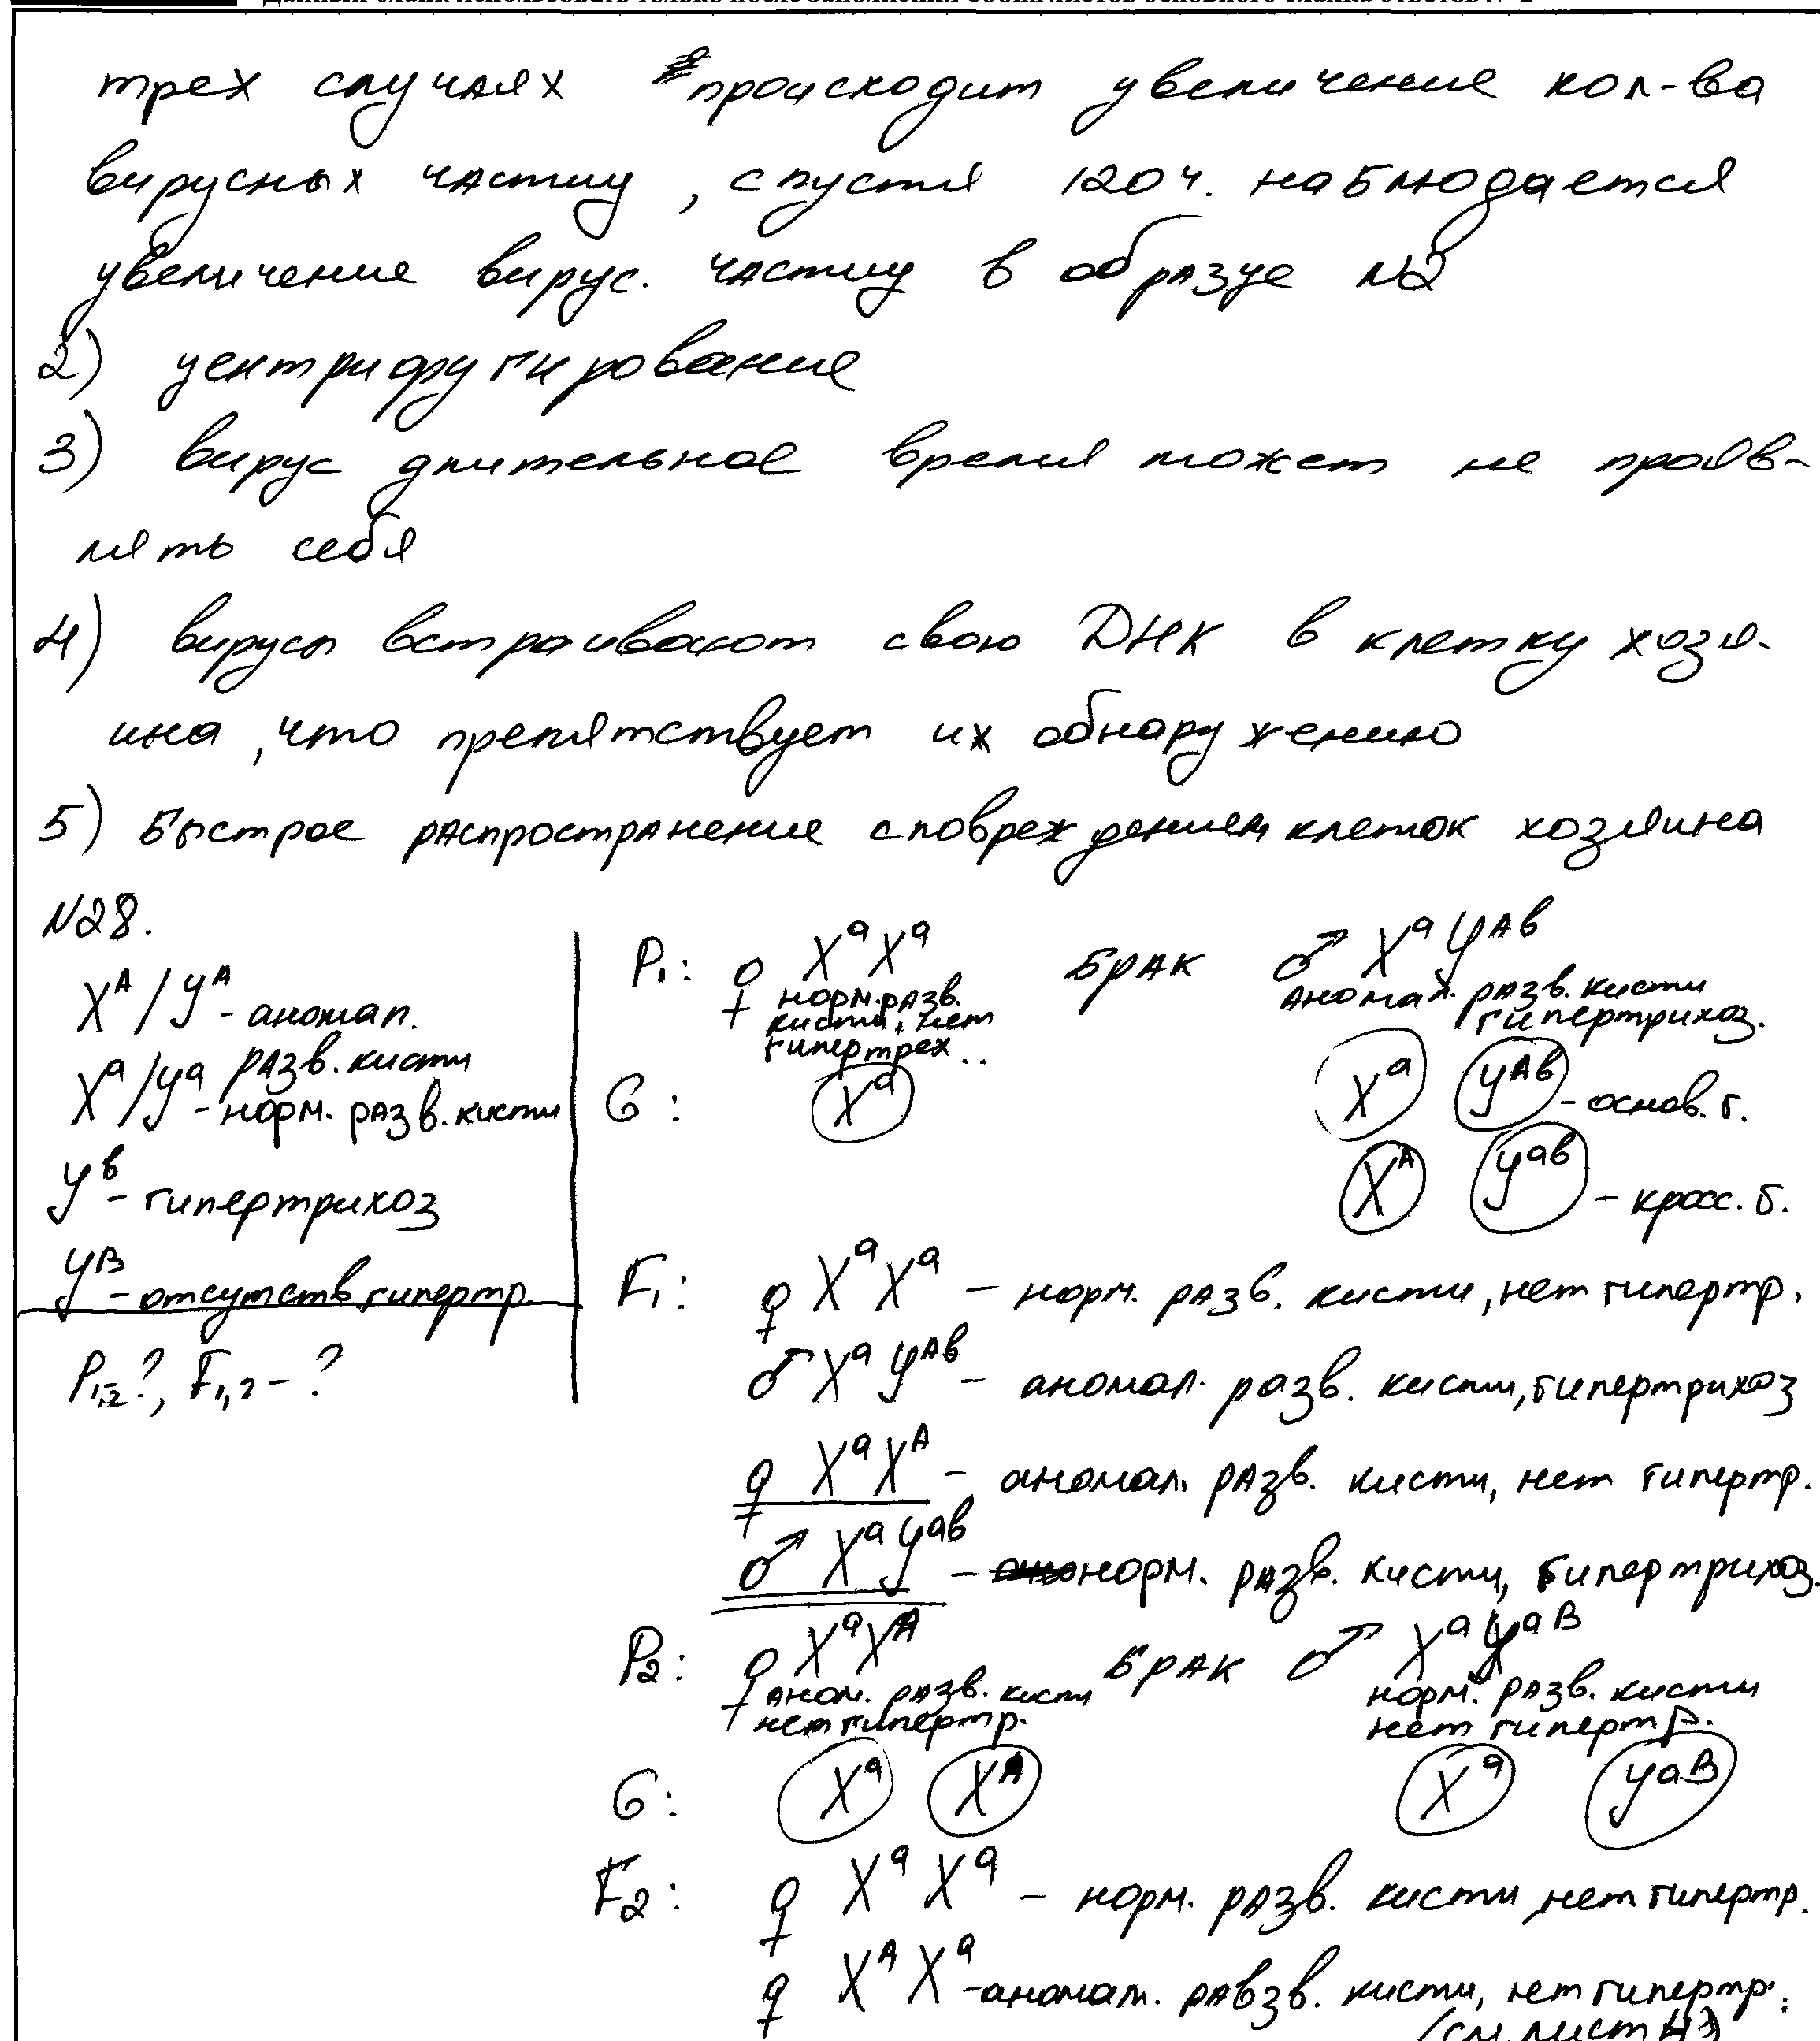 Данный бланк использовать только после заполнения обоих листов основного бланка ответов № 2
трех случаях происходит увеличение кол-ва
вирусных частиц, спустя 120 ч. наблюдается
увеличение вирус. частиц в образце №2
2) центрифугирование
3) вирус длительное время может не прояв-
лять себя
4) вирусы встраивают свою ДНК в клетку хозя-
ина, что препятствует их обнаружению
5) Быстрое распространение с повреждением клеток хозяина
№28.
X^A / Y^A - аномал. разв. кисти
X^a / Y^a - норм. разв. кисти
Y^b - гипертрихоз
Y^B - отсутств. гипертр.
P1,2 - ?, F1,2 - ?
P1: ♀ X^a X^a брак ♂ X^a Y^Ab
норм. разв. кисти, нет гипертрех..
аномал. разв. кисти гипертрихоз.
G: X^a X^a Y^Ab - основ. г.
X^A Y^ab - кросс. г.
F1: ♀ X^a X^a - норм. разв. кисти, нет гипертр.
♂ X^a Y^Ab - аномал. разв. кисти, гипертрихоз
♀ X^a X^A - аномал. разв. кисти, нет гипертр.
♂ X^a Y^ab - норм. разв. кисти, гипертрихоз.
P2: ♀ X^a X^A брак ♂ X^a Y^aB
аном. разв. кисти нет гипертр.
норм. разв. кисти нет гипертр.
G: X^a X^A X^a Y^aB
F2: ♀ X^a X^a - норм. разв. кисти, нет гипертр.
♀ X^A X^a - аномал. равзв. кисти, нет гипертр.
(см. лист №3)